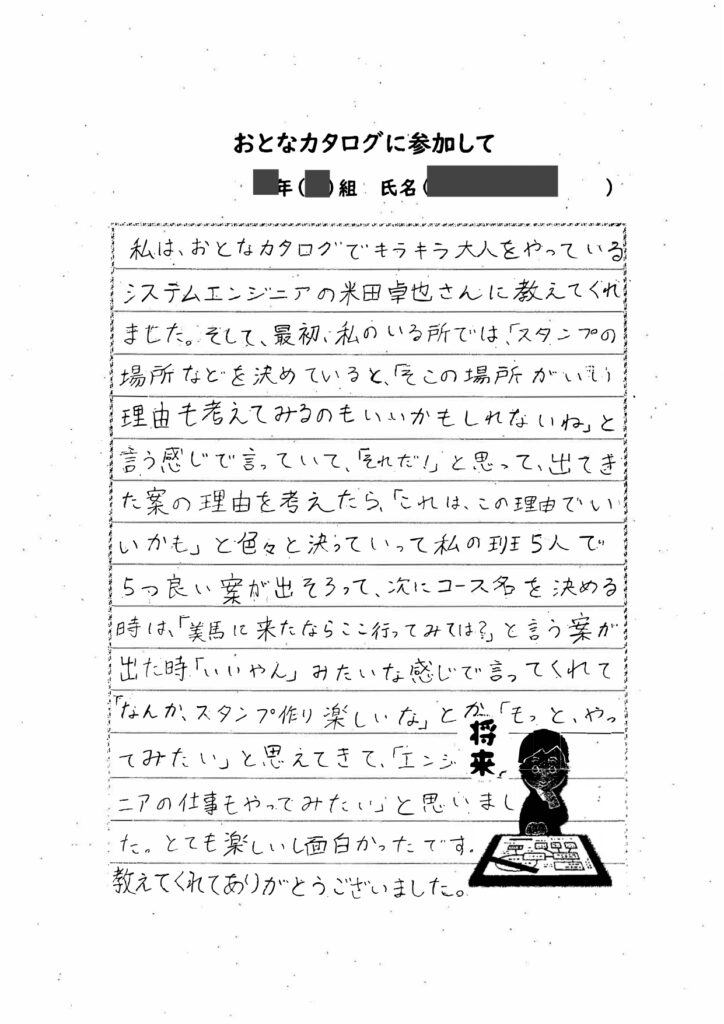 おとなカタログに参加して
年( )組 氏名( )
私は、おとなカタログでキラキラ大人をやっている
システムエンジニアの米田卓也さんに教えてくれ
ました。そして、最初、私のいる所では、「スタンプの
場所などを決めていると、「そこの場所がいい
理由も考えてみるのもいいかもしれないね」と
言う感じで言っていて、「それだ!」と思って、出てき
た案の理由を考えたら、「これは、この理由でい
いかも」と色々と決っていって私の班5人で
5つ良い案が出そろって、次にコース名を決める
時は、「美馬に来たならここ行ってみては?」と言う案が
出た時「いいやん」みたいな感じで言ってくれて
「なんか、スタンプ作り楽しいな」とか「もっと、やっ
てみたい」と思えてきて、「エンジ
ニアの仕事もやってみたい」と思いまし
た。とても楽しいし面白かったです。
教えてくれてありがとうございました。
将来